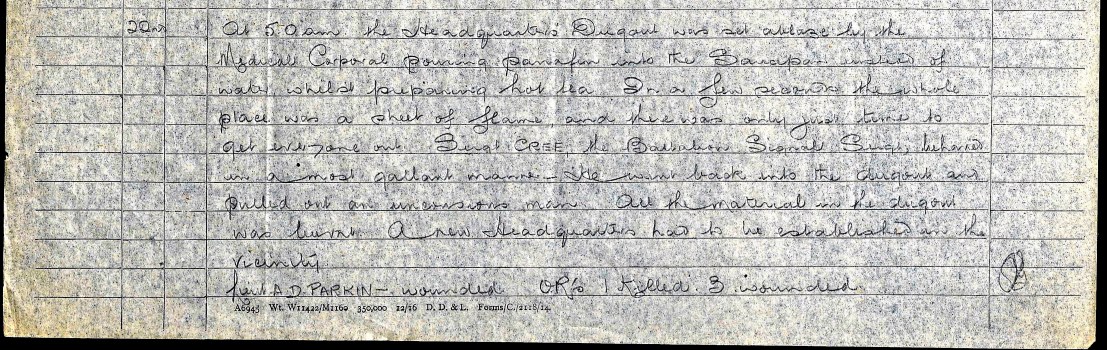 22nd At 5.0 am the Headquarters Dugout was set ablaze by the
Medical Corporal pouring parafin into the Saucepan instead of
water whilst preparing hot tea In a few seconds the whole
place was a sheet of flame, and there was only just time to
get everyone out. Sergt CREE, the Battalion Signals Sergt, behaved
in a most gallant manner – He went back into the dugout and
pulled out an unconscious man. All the material in the dugout
was burnt. A new Headquarters had to be established in the
vicinity.
Lieut A.D. PARKIN – wounded OR's 1 Killed. 3 wounded
A6945 Wt. W11422/M1160 350,000 12/16 D. D. & L. Forms/C./2118/14.